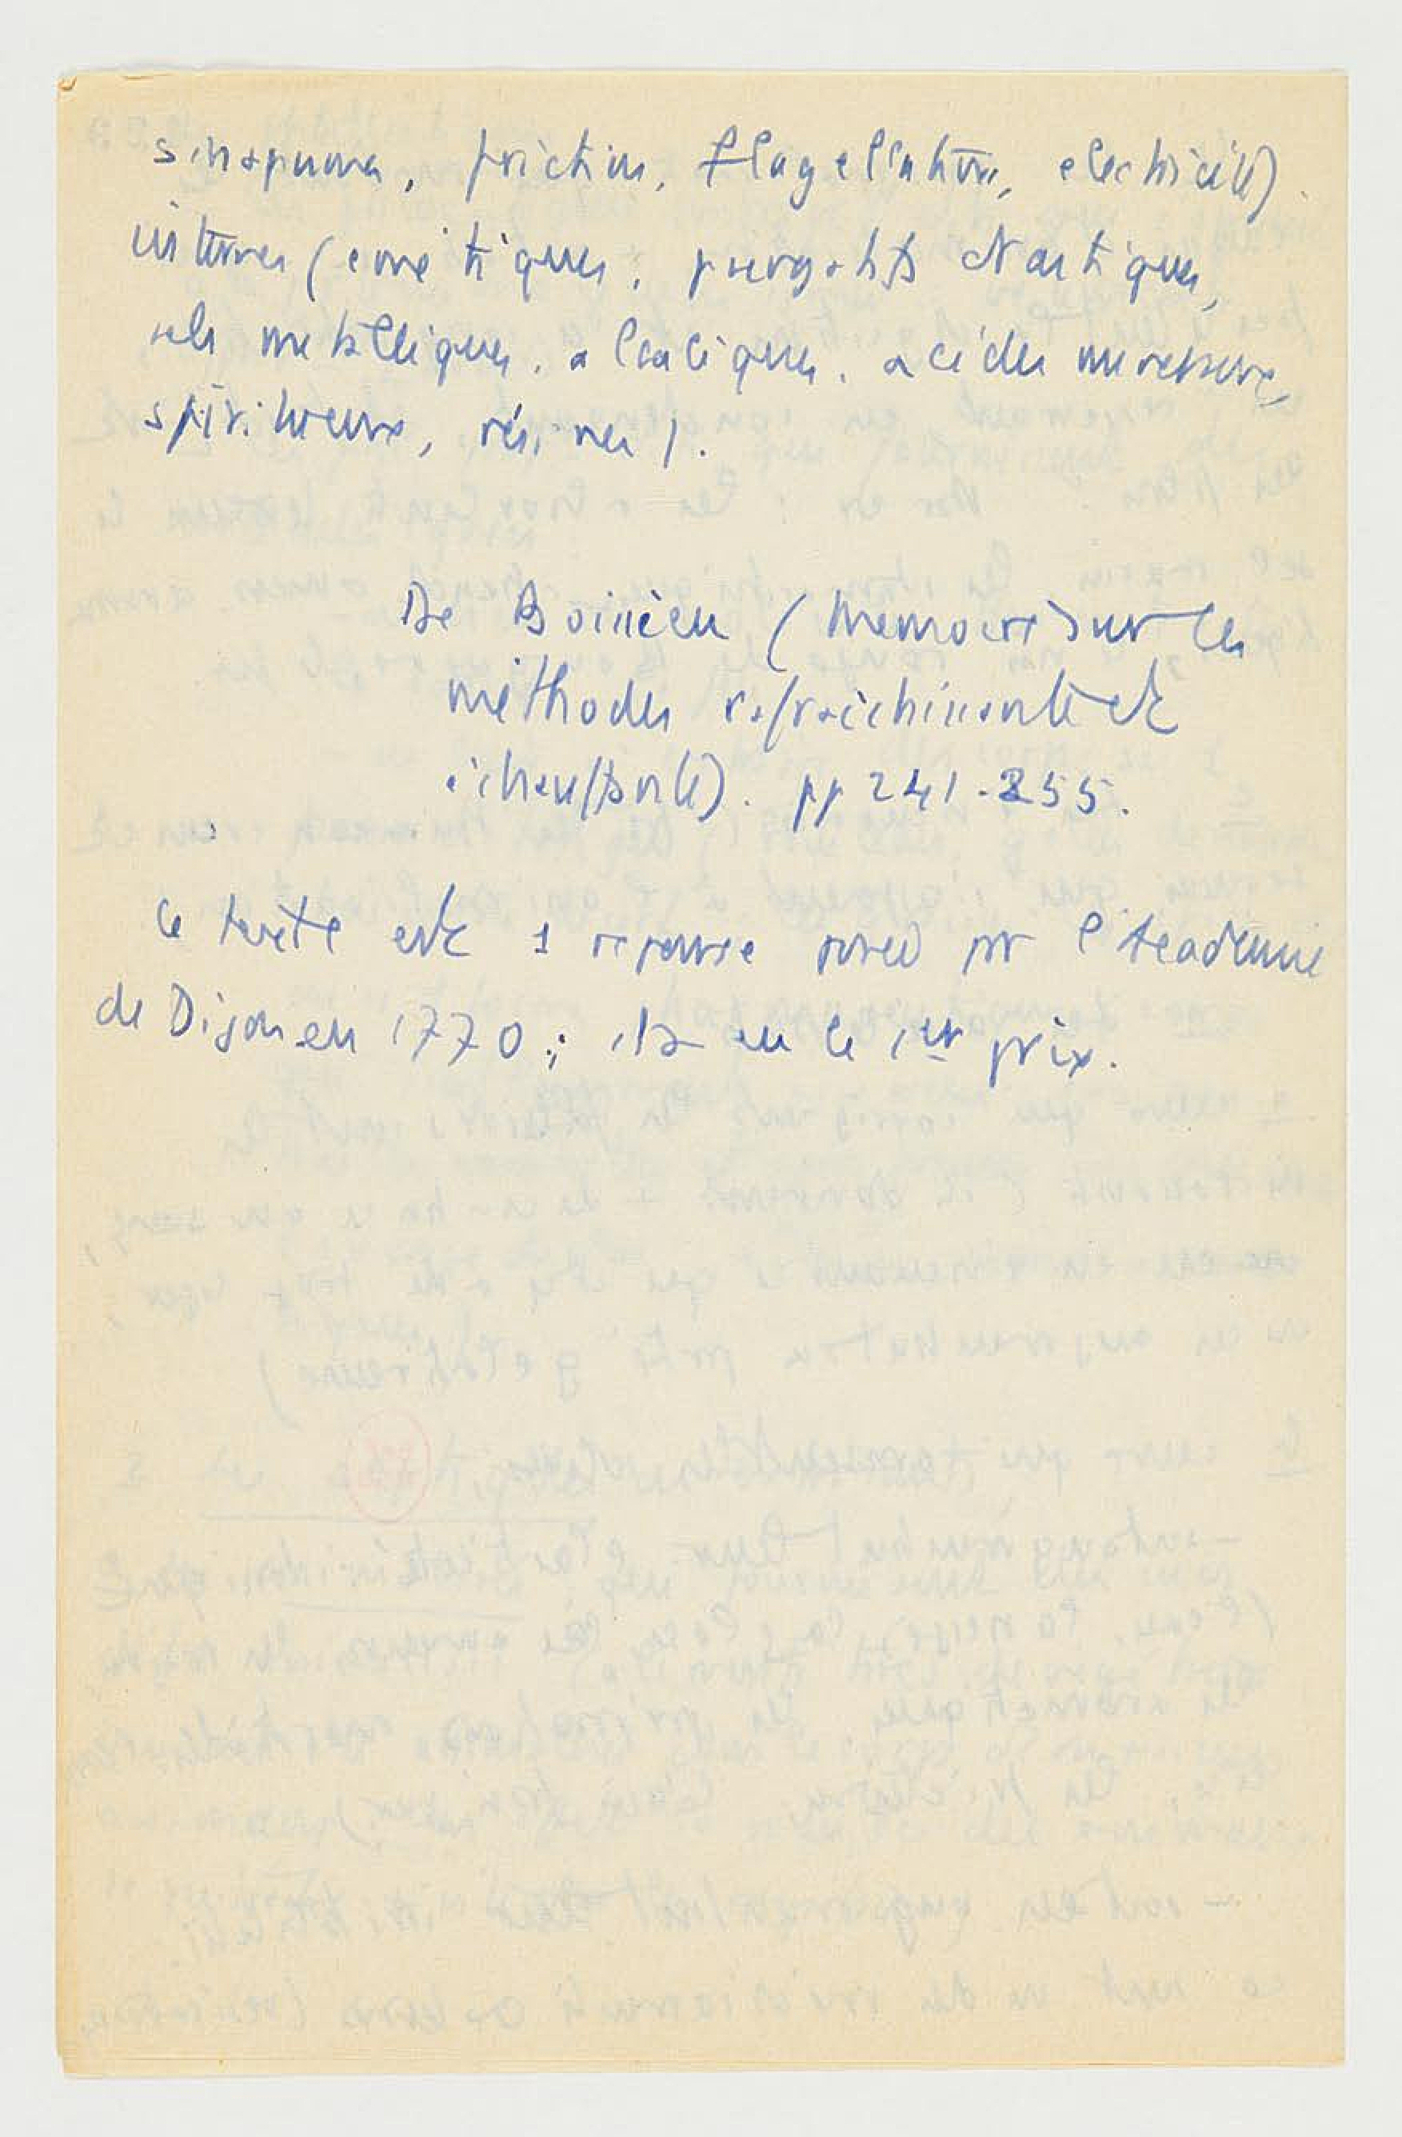 sinapismes, friction, flagellation, electricité)
internes (émétiques, purgatifs drastiques,
sels metalliques, alcaliques, acides
spiritueux, résines).
De Boissieu (Memoire sur les
méthodes rafraichissante et
échauffante). pp 241-255.
Ce texte est 1 reponse posée par l'Academie
de Dijon en 1770; il a eu le 1er prix.